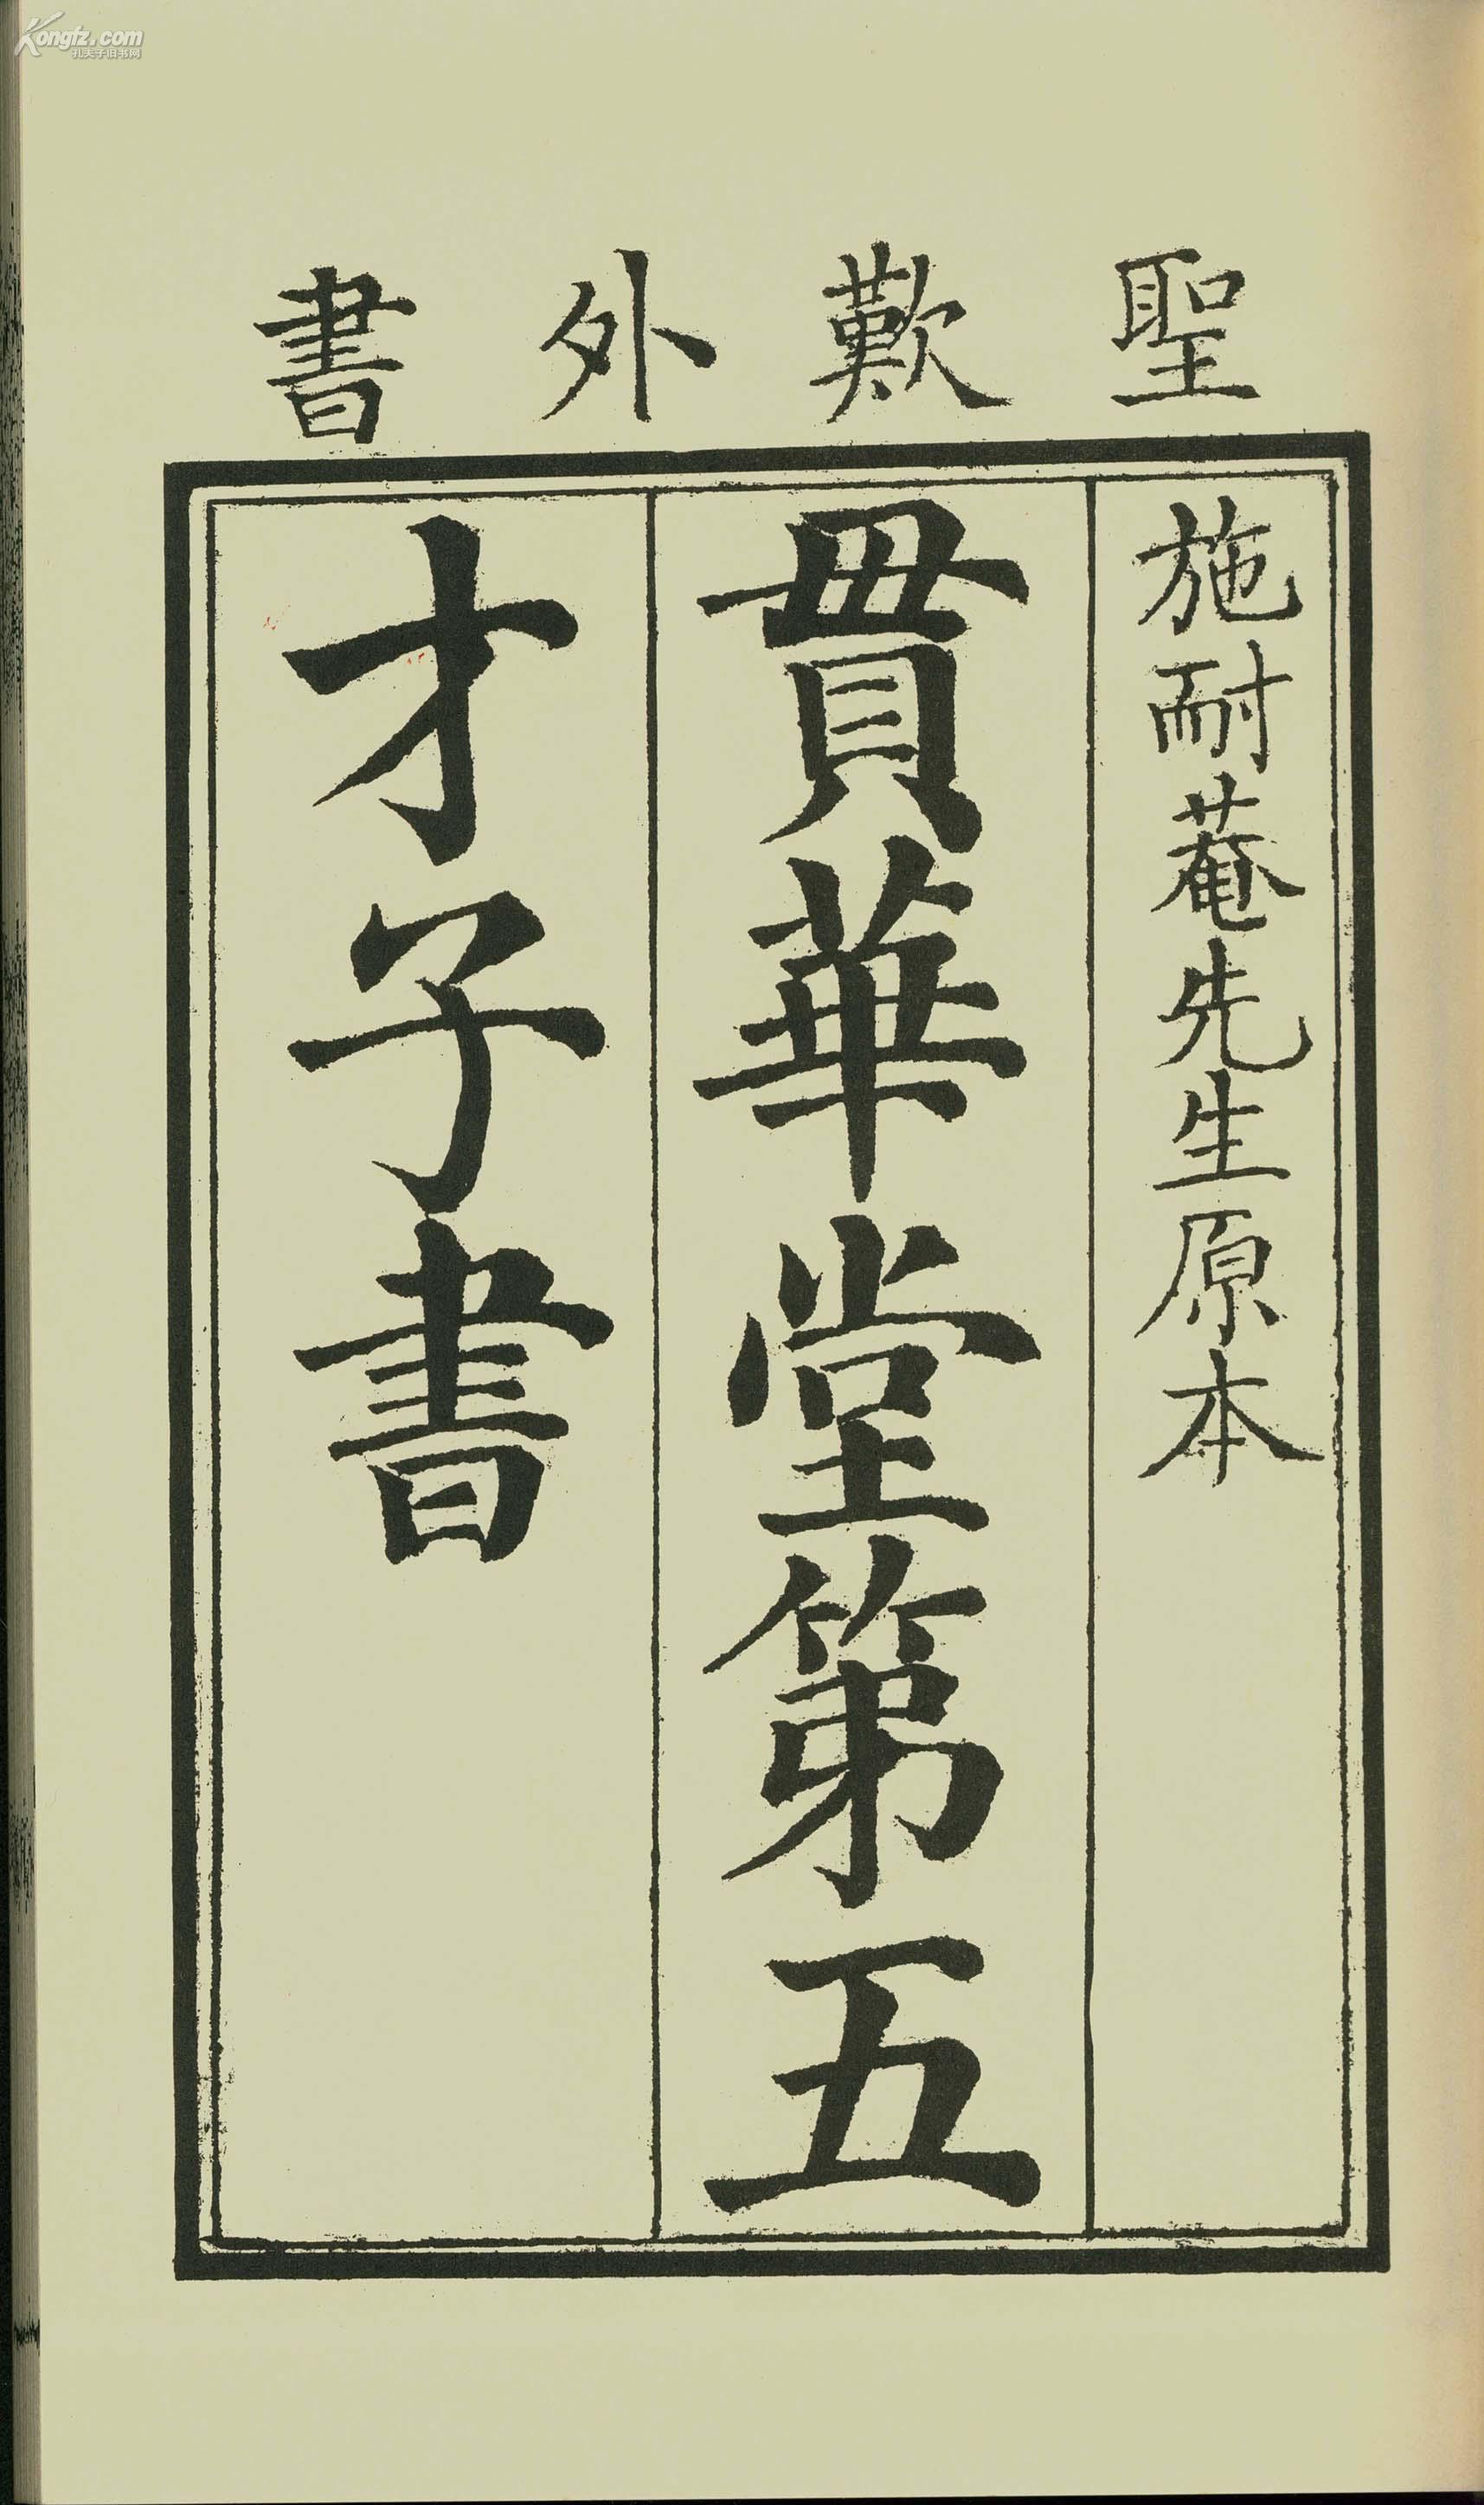 Kongfz.com
孔夫子旧书网
聖歎外書
施耐菴先生原本
貫華堂第五
才子書